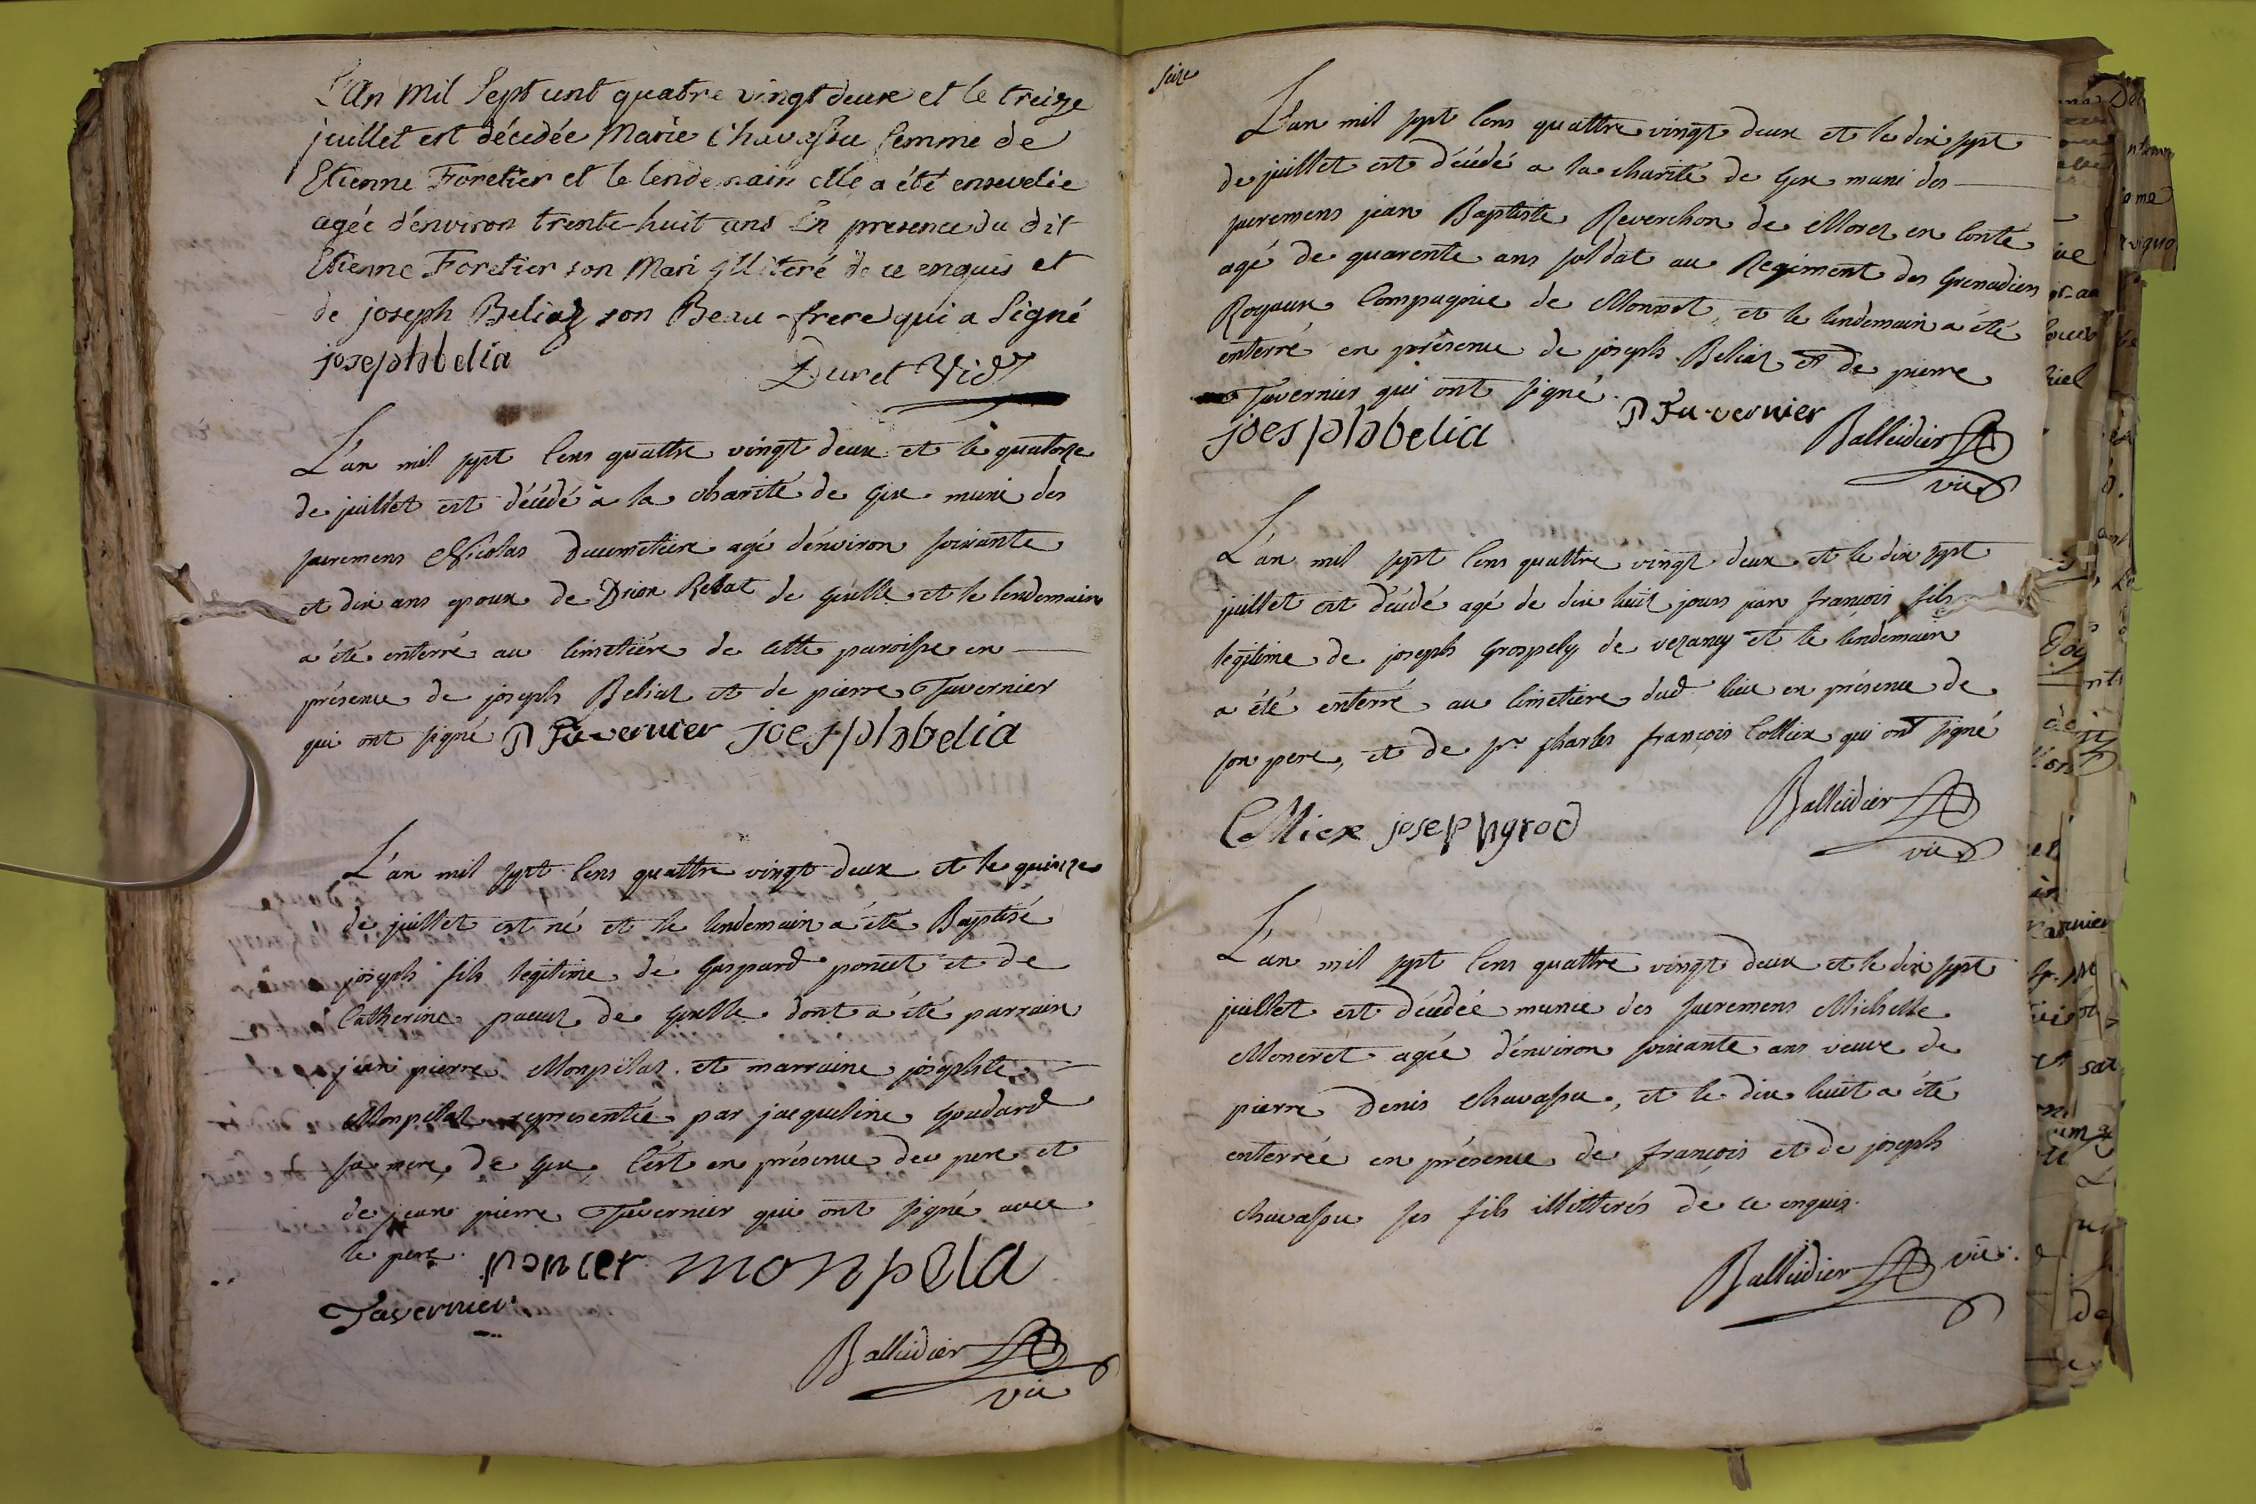 L'An Mil Sept cent quatre vingt deux et le treize
juillet est décedée Marie Chavassu femme de
Etienne Foretier et le lendemain elle a été ensevelie
agée d'énviron trente-huit ans En presence du dit
Etienne Foretier son Mari illiteré de ce enquis et
de joseph Beliaz son Beau-frere qui a Signé
josephbelia Duret Vic
L'an mil sept Cens quattre vingt deux et le quatorze
de juillet est décédé a la charité de Gex muni des
sacremens Nicolas agé d'énviron soixante
et dix ans epoux de de Gexlle et le lendemain
a été enterré au Cimetière de cette paroisse en
présence de joseph Beliaz et de pierre Tavernier
qui ont signé P Tavernier joesphbelia
L'an mil sept Cens quattre vingt deux et le quinze
de juillet est né et le lendemain a été Baptisé
joseph fils legitime de Gaspard poncet et de
Catherine de Gexlle dont a été parrain
jean pierre Monpelaz et marraine josephte
Monpelaz représentée par jacqueline Goudard
sa mere, de Gex, C'est en présence du pere et
de jean pierre Tavernier qui ont signé avec
le pere. poncet monpela
Tavernier
Balleidier
vic
seize
L'an mil sept Cens quattre vingt deux et le dix sept
de juillet est décédé a la charité de Gex muni des
sacremens jean Baptiste Reverchon de Morez en Conté
agé de quarente ans soldat au Regiment des Grenadiers
Royaux Compagnie de et le lendemain a été
enterré en présence de joseph Beliaz et de pierre
Tavernier qui ont signé.
joesphbelia P Tavernier Balleidier
vic
L'an mil sept Cens quattre vingt deux et le dix sept
juillet est décédé agé de dix huit jours jean françois fils
legitime de joseph Grospely de vezancy et le lendemain
a été enterré au Cimetiere dud lieu en présence de
son pere, et de sr. charles françois Colliex qui ont signé
Colliex josephgrod Balleidier
vic
L'an mil sept Cens quattre vingt deux et le dix sept
juillet est décédée munie des sacremens Michelle
Moneret agée d'énviron soixante ans veuve de
pierre Denis Chavassu, et le dix huit a été
enterrée en présence de françois et de joseph
chavassu ses fils illitterés de ce enquis.
Balleidier vic.